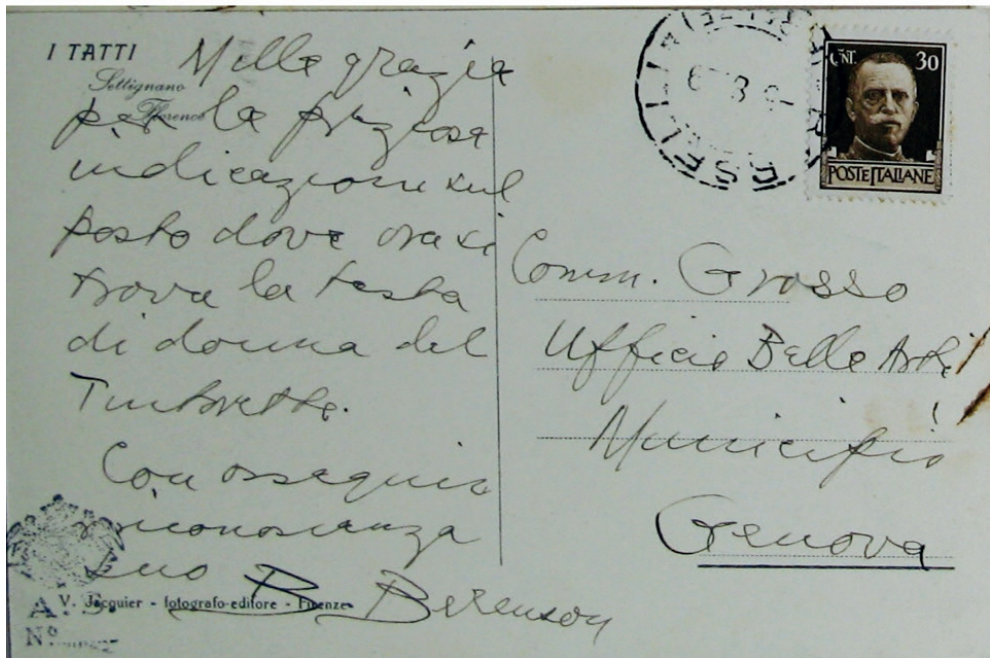 I TATTI
Settignano
Florence
Mille grazie
per la preziosa
indicazione sul
posto dove ora si
trova la testa
di donna del
Tintoretto.
Con ossequi e
riconoscenza
suo B Berenson
V. Jacquier - fotografo-editore - Firenze
A.
N°
CNT. 30
POSTE ITALIANE
Comm. Grosso
Ufficio Belle Arti
Municipio
Genova